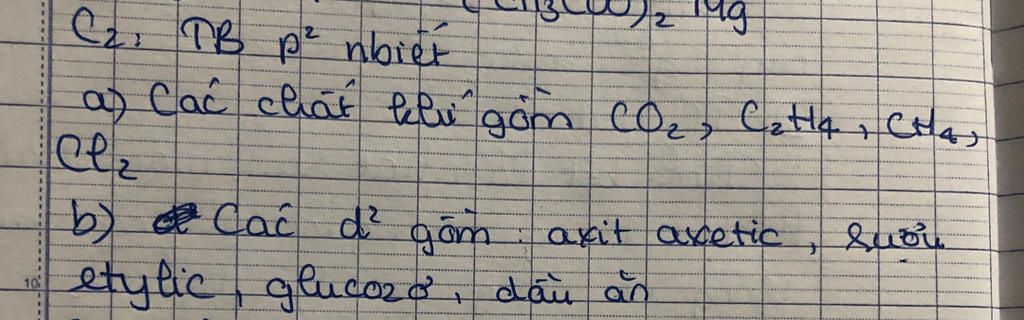 (CH3COO)2 Mg
C2, TB p² nbiết
a) Các chất khí gồm CO2, C2H4, CH4,
Cl2
b) Các d² gồm: axit axetic, rượu
etylic, glucozơ, dầu ăn
10